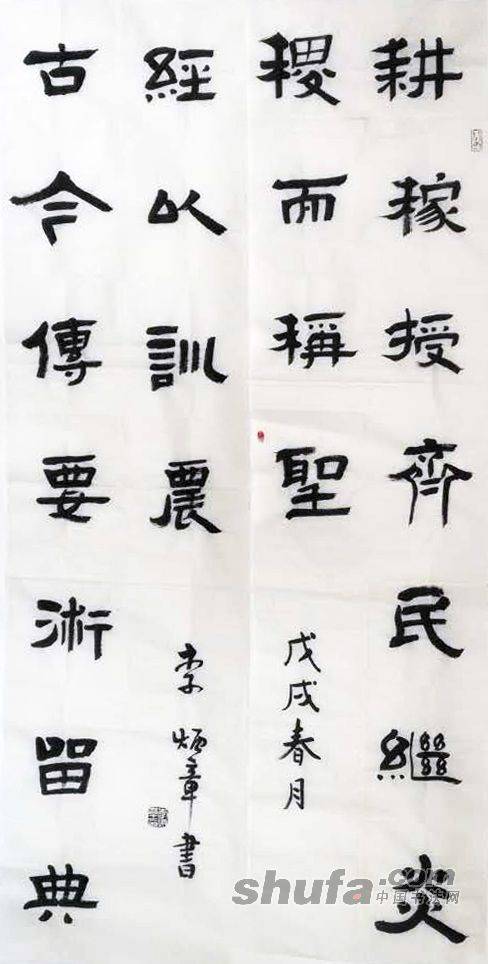 耕稼授齊民繼炎
稷而稱聖
戊戌春月
古今傳要術留典
經以訓農
李炳章書
shufa.com
中国书法网